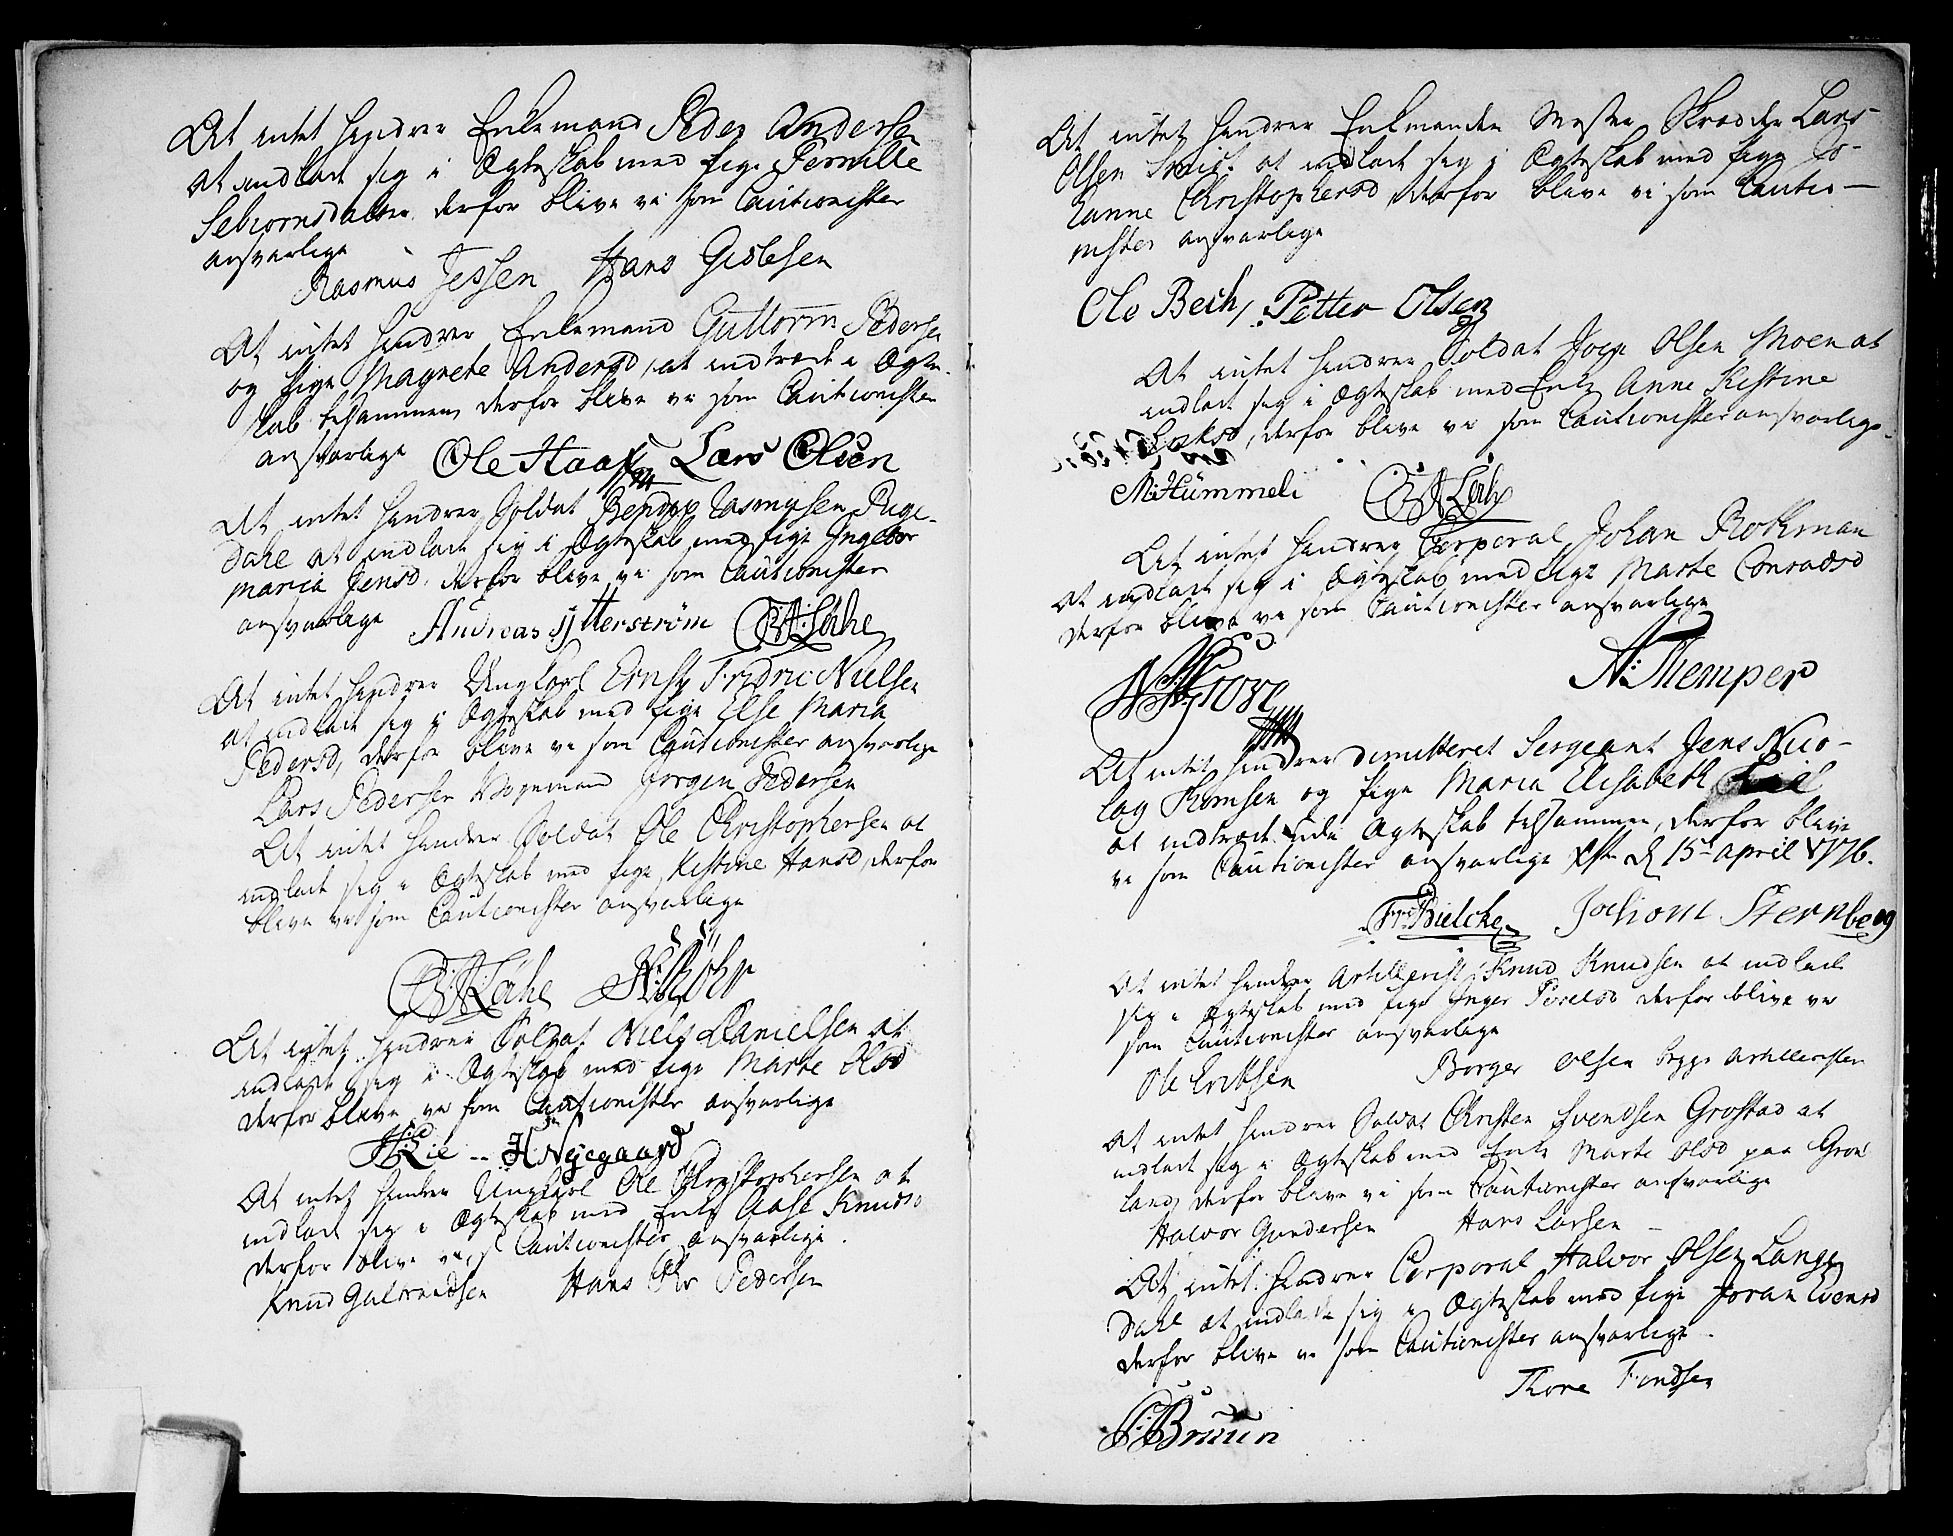 At intet hindrer Enkemand Peder Andersen
at indlade sig i Ægteskab med Pige Pernille
Sebiornsdatter, derfor blive vi som Cautionister
ansvarlige
Rasmus Jessen Hans Gislesen
At intet hindrer Enkemand Guttorm Pedersen
og Pige Magnete Andersd, at indtræde i Ægte-
skab tilsammen, derfor blive vi som Cautionister
ansvarlige Ole Haagensen Lars Olsen
At intet hindrer Soldat Rasmusen Ruge-
dahl at indlade sig i Ægteskab med Pige Ingebor
maria Jensd. derfor blive vi som Cautionister
ansvarlige Andreas Ytterstrøm
At intet hindrer Ungkarl Ernst Fridric Nielsen
at indlade sig i Ægteskab med Pige Else Maria
Pedersd, derfor blive vi som Cautionister ansvarlige
Lars Pedersen Vognmand Jørgen Pedersen
At intet hindrer Soldat Ole Christophersen at
indlade sig i Ægteskab med Pige Kistine Hansd, derfor
blive vi som Cautionister ansvarlige
At intet hindrer Soldat Niels Danielsen at
indlade sig i Ægteskab med Pige Marte Olsd
derfor blive vi som Cautionister ansvarlige
H: Lie -- H Nejegaard
At intet hindrer Ungkarl Ole Christophersen at
indlade sig i Ægteskab med Enke Aase Knudsd
derfor blive vi, s: Cautionister ansvarlige.
Knud Gulbrandsen Hans Chr Pedersen
At intet hindrer Enkmanden Mester Skrædder Lars
Olsen at indlade sig i Ægteskab med Pige Jo-
hanne Christophersd, derfor blive vi som Cautio-
nister ansvarlige
Ole Bech, Petter Olsen
At intet hindrer Soldat Joen Olsen Moen at
indlade sig i Ægteskab med Enke Anne Kistine
derfor blive vi som Cautionister ansvarlige.
M: Hümmeli
At intet hindrer Corporal Johan Rothman
at indlade sig i Ægteskab med Pige Marte Conradsd
derfor blive vi som Cautionister ansvarlige
N: Grove N: Themper
At intet hindrer dimitteret Sergeant Jens Nico-
lay Thomsen og Pige Maria Elisabeth
at indtræde udi Ægteskab tilsammen, derfor blive
vi som Cautionister ansvarlige d 15de April 1776.
Fr: Bielche Jochom Sternberg
At intet hindrer Artillerist Knud Knudsen at indlade
sig i Ægteskab med Pige Inger Povelsd derfor blive vi
som Cautionister ansvarlige
Ole Eriksen Borger Olsen begge Artillerister
At intet hindrer Soldat Christen Svendsen Grøstad at
indlade sig i Ægteskab med Enke Marte Olsd paa Grøn
land, derfor blive vi som Cautionister ansvarlige
Halvor Gundersen Hans Larsen
At intet hindrer Corporal Halvor Olsen Lange
dahl at indlade sig i Ægteskab med Pige Joran Evensd
derfor blive vi som Cautionister ansvarlige
Thore
Bruun